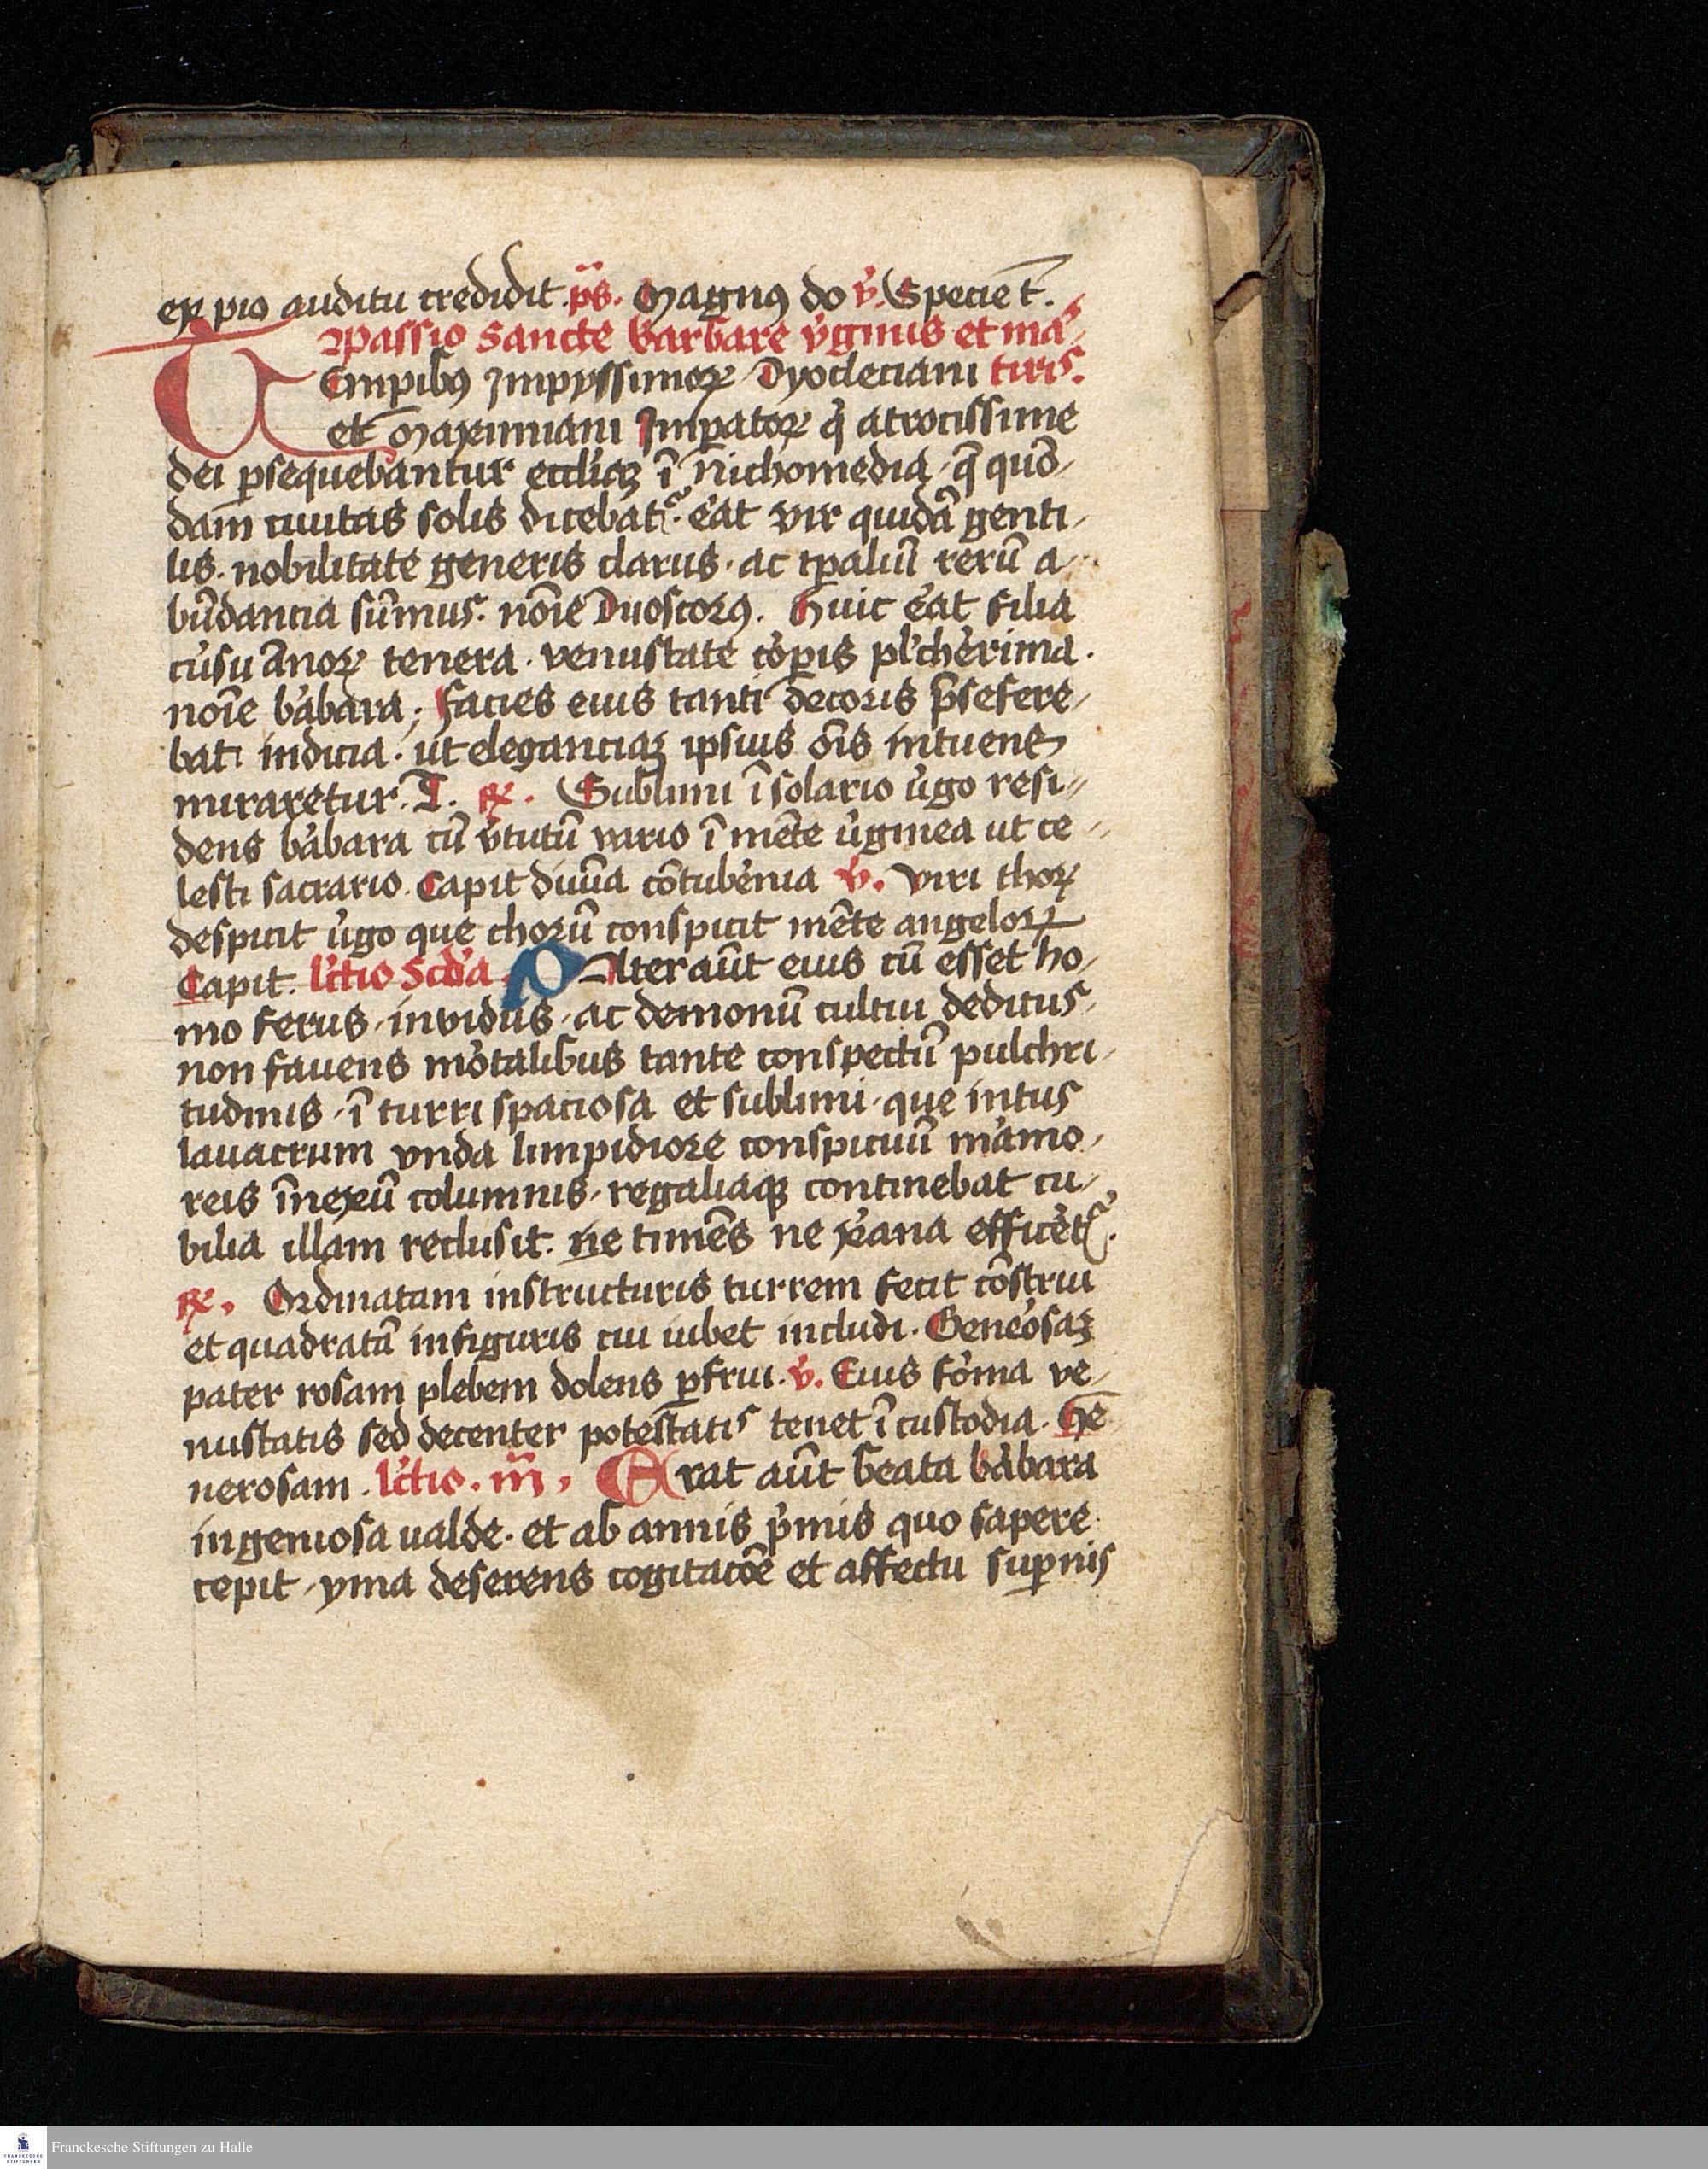 ex pio auditu credidit. ps̄. Magnꝰ do v̓. Specie t̄.
Passio sancte barbare v̓ginis et ma-
Tempibꝰ Impyssimoꝝ Dyocleciani tiris.
et Maximiani Impatoꝝ q̓ atrocissime
dei ꝑsequebantur eccl̓iaꝫ ī Nichomedia, q̄ quō-
dam ciuitas solis dicebat᷑. e̓at vir quidā genti-
lis. nobilitate generis clarus. ac tꝑaliū rerū a-
būdancia sūmus. noīe Dyoscorꝰ. Huic e̓at filia
cu̓su ānoꝝ tenera. venustate co̓ꝑis pl̓che̓rima.
noīe ba̓bara; Facies eius tanti decoris p̄sefere-
bat indicia. ut eleganciaꝫ ipsius oīs intuens
miraretur. T. ꝶ. Sublimi ī solario v̓go resi-
dens ba̓bara cū v̓tutū vario ī mēte v̓ginea ut ce-
lesti sacrario. Capit diuīa cōtube̓nia v̓. Viri thoꝝ
despicit v̓go que chorū conspicit mēte angeloꝝ
Capit. l̓ctio Scd̓a. Pater aūt eius cū esset ho-
mo ferus, inuidus, ac demonū cultui deditus,
non fauens mo̓talibus tante conspectū pulchri-
tudinis, ī turri spaciosa et sublimi, que intus
lauacrum vnda limpidiore conspicuū ma̓mo-
reis īnexū columnis, regaliaqꝫ continebat cu-
bilia illam reclusit. ne timēs ne xp̓ana effice̓t᷑.
ꝶ. Ordinatam in structuris turrem fecit cōstrui
et quadratā in figuris cui iubet includi. Geneo̓saꝫ
pater rosam plebem dolens ꝑfrui. v̓. Eius fo̓ma ve-
nustatis sed decenter potestatis tenet ī custodia. Ge
nerosam. l̓ctio. iii. Erat aūt beata ba̓bara
ingeniosa ualde. et ab annis p̓mis quo sapere
cepit, yma deserens cogitacōe et affectu suꝑnis
Franckesche Stiftungen zu Halle